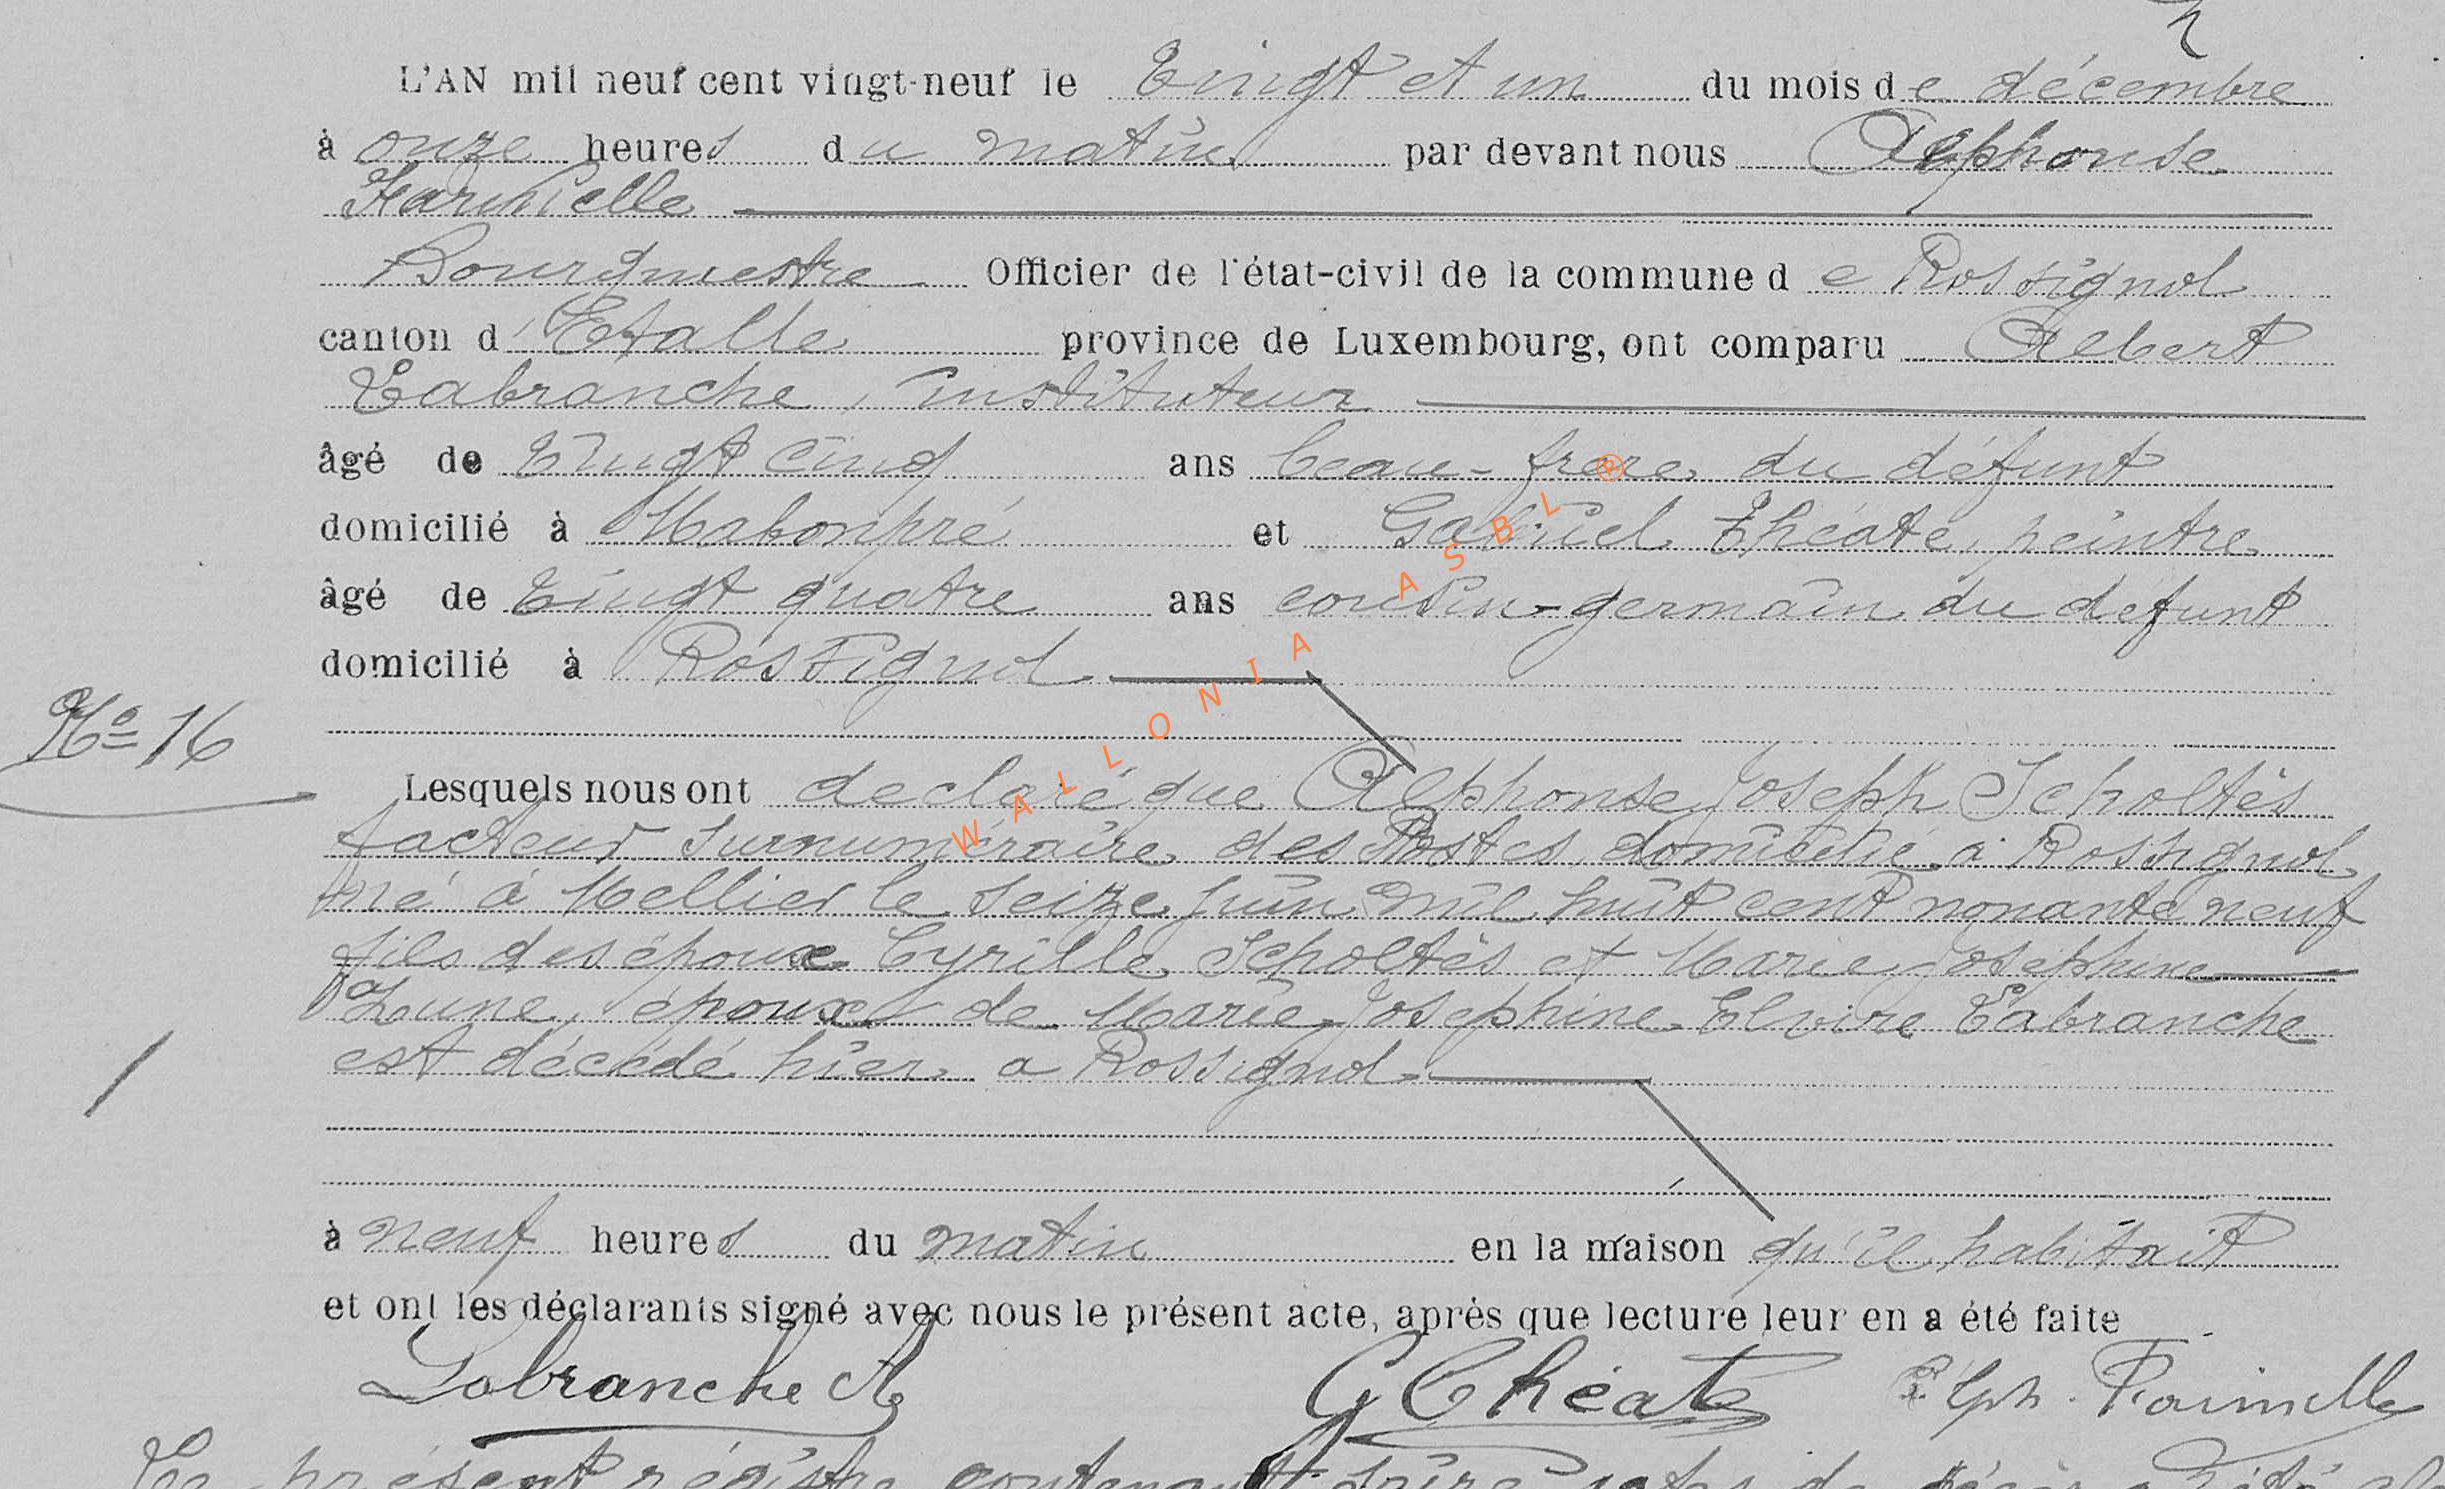 L'AN mil neuf cent vingt-neuf le Vingt et un du mois de décembre
à onze heures du matin par devant nous Alphonse
Bourgmestre Officier de l'état-civil de la commune de Rossignol
canton d'Etalle province de Luxembourg, ont comparu Albert
Labranche, instituteur
âgé de Vingt cinq ans beau-frère du défunt
domicilié à Mabompré et Gabriel Théate, peintre
âgé de Vingt quatre ans cousin-germain du défunt
domicilié à Rossignol
No 16
Lesquels nous ont déclaré que Alphonse Joseph Scholtès
facteur surnuméraire des Postes domicilié à Rossignol
né à Mellier le seize juin mil huit cent nonante neuf
fils des époux Cyrille Scholtès et Marie Joséphine
époux de Marie Joséphine Elvire Labranche
est décédé hier a Rossignol
à neuf heures du matin en la maison qu'il habitait
et ont les déclarants signé avec nous le présent acte, après que lecture leur en a été faite
Labranche A G Théate Alph.
Le présent régistre contenant actes de décès a été
WALLONIA ASBL ®